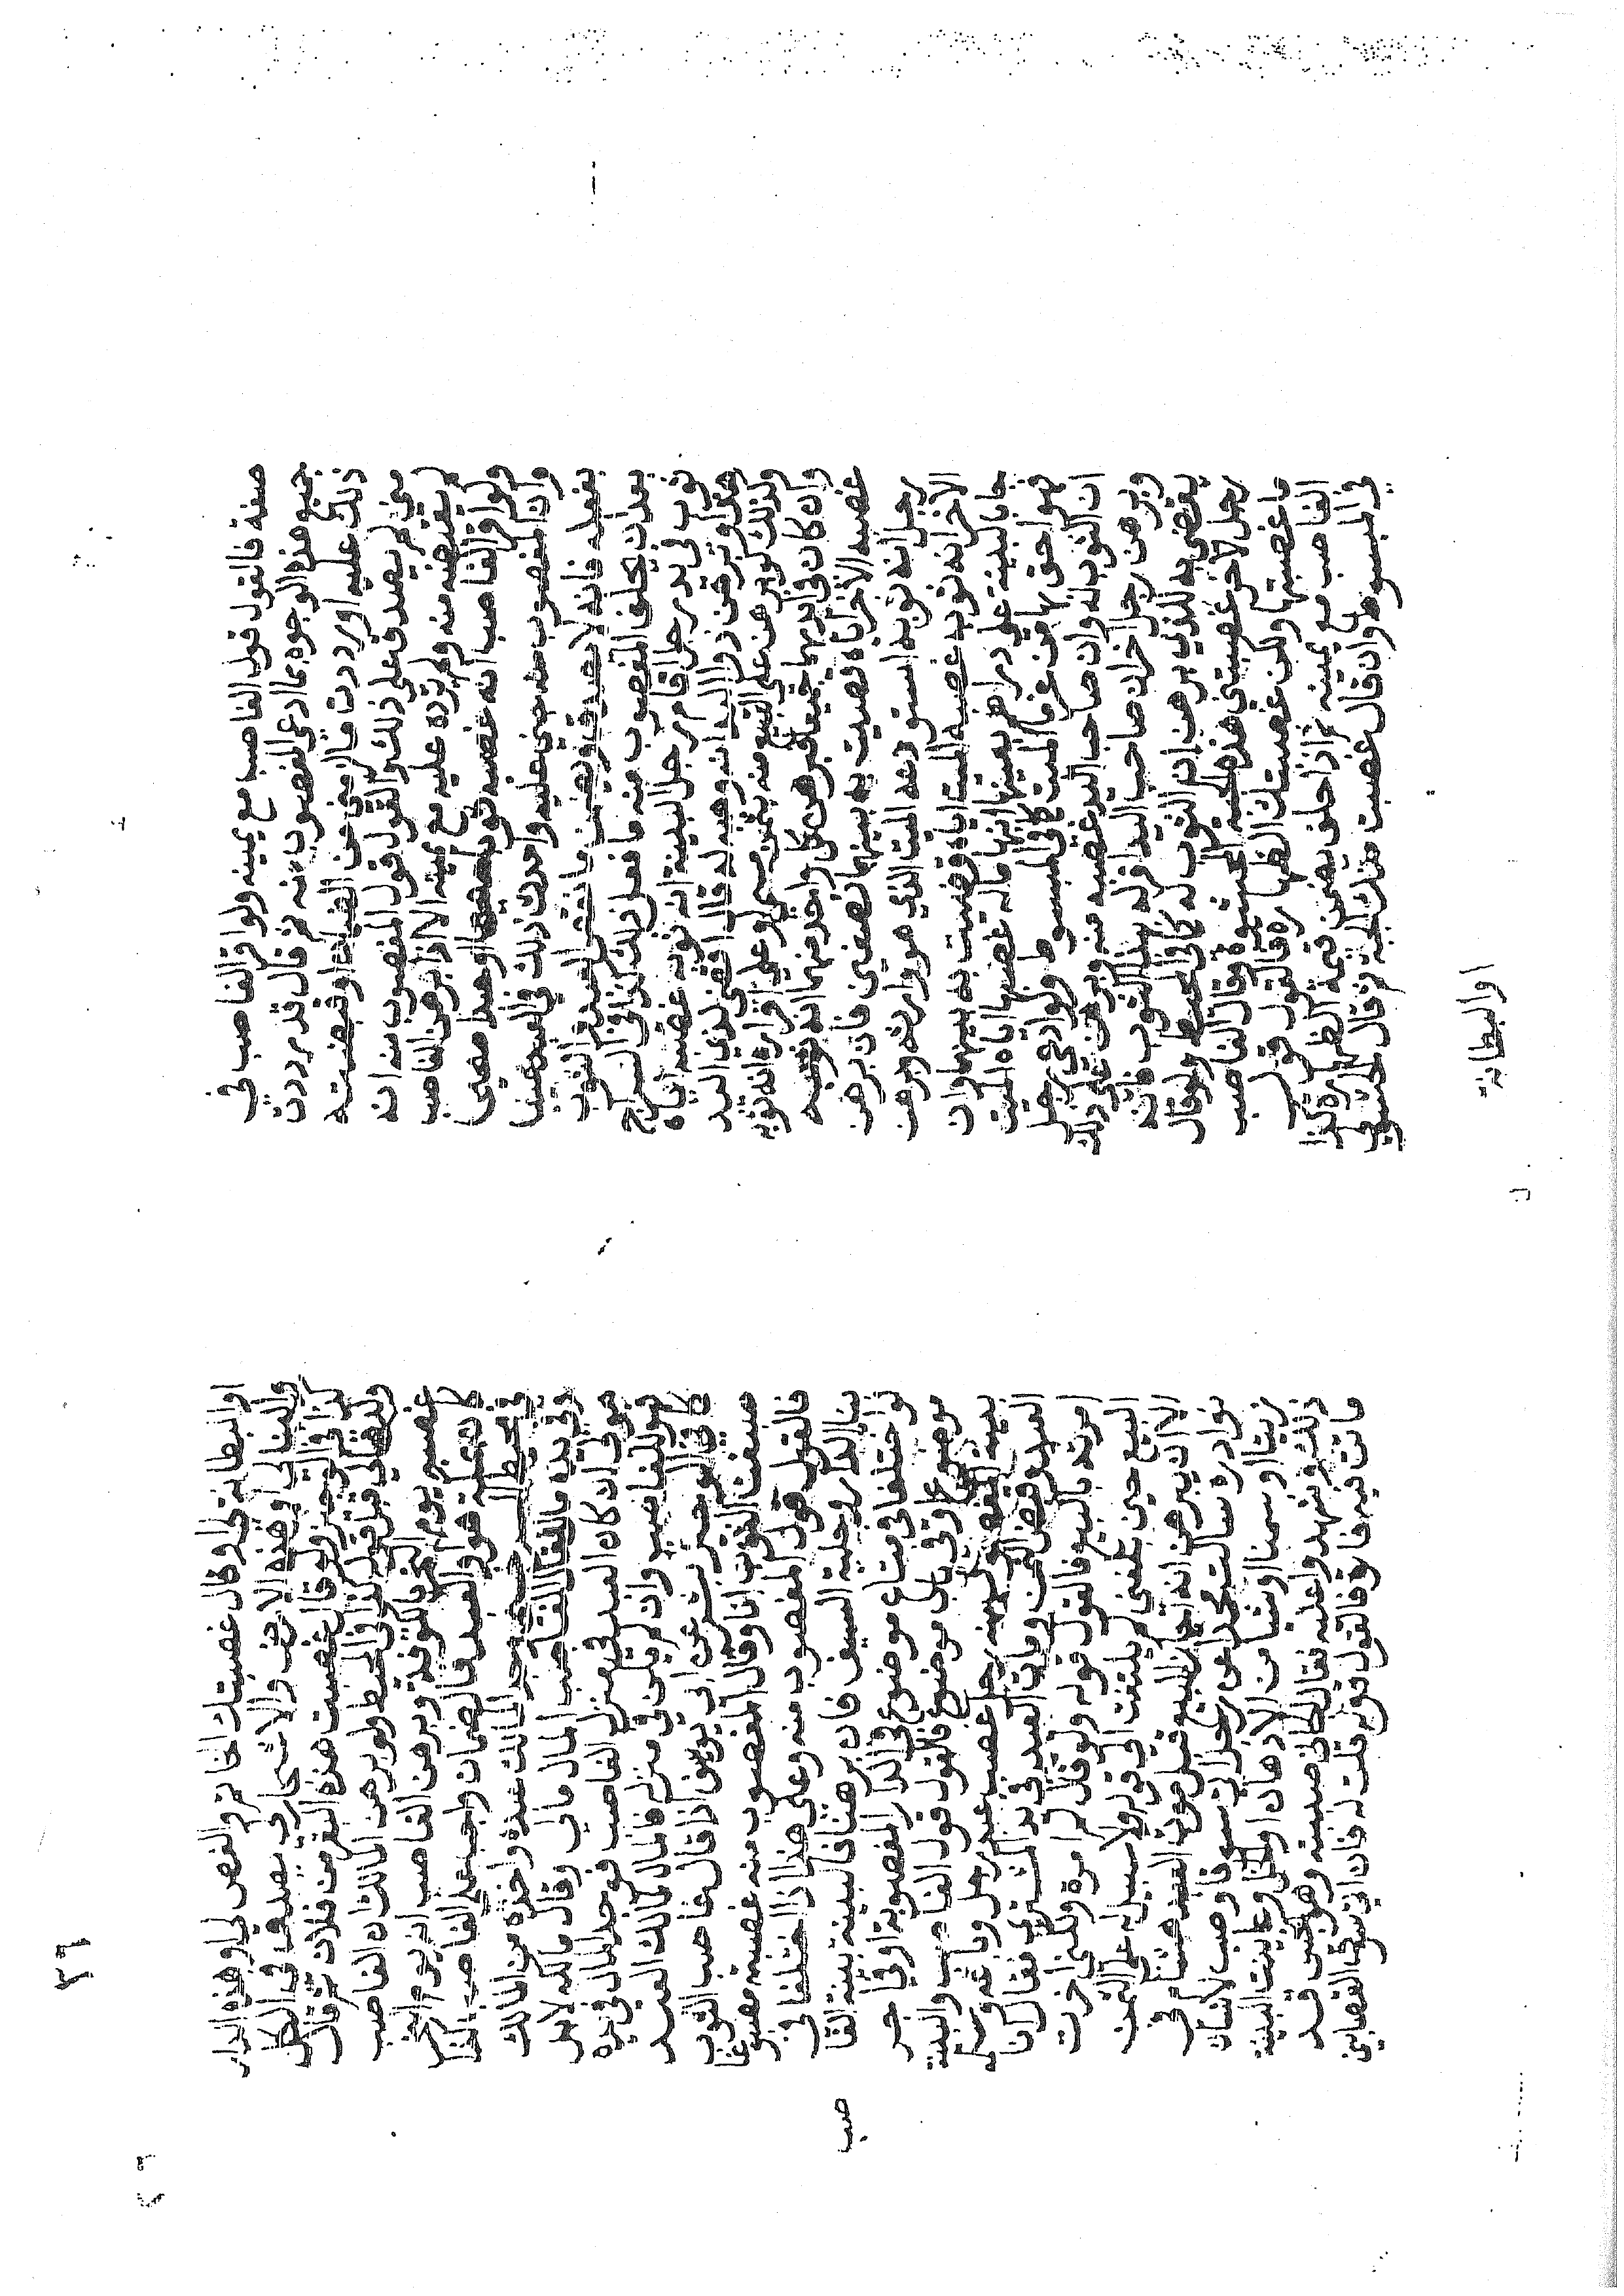 صفة فالقول قول الغاصب مع يمينه ولو اقر الغاصب في
جميع هذه الوجوه بما ادعى المغصوب منه ثم قال قد رددت
ذلك عليه او رددت ما لزمني من الضمان او قبضته
مني لم يصدق على ذلك والقول قول المغصوب منه انه
لم يقبضه منه ولم يرده عليه مع يمينه الا اذا برهن الغاصب
ولو اقر الغاصب انه غصبه ثوبا
وان المغصوب منه جنى عليه واحدث ذلك في العبد
بفعله فانه لا يصدق ويضمن ما نقص العبد والثوب
بعد ان يحلف المغصوب منه ما فعل ذلك كذا في السراج
ثوب في يد رجل اقام رجل البينة انه ثوبه غصبه اياه
هذا وبرهن ذو اليد انه وهبه له قال اقضي لذي اليد
وكذلك لو برهن على البيع منه بثمن مسمى او على اقراره انه ثوبه
وان كان في ايديهما جميعا فبرهن كل واحد منهما انه ثوبه
غصبه الاخر اياه قضيت به بينهما نصفين فان برهن
رجل انه ثوبه استودعه الميت الذي هو وارثه وبرهن
الاخر انه ثوبه غصبه الميت اياه قضيت به بينهما وان
جا بالبينة على دراهم بعينها انها ماله غصبها اياه الميت
فهو احق بها من غرما الميت كذا في المبسوط ولو ادعى رجل
ان الثوب له وان صاحب اليد غصبه منه وبرهن على ذلك
وبرهن رجل اخر ان صاحب اليد اقر له بهذا الثوب فانه
يقضي به للذي برهن ان الثوب له كذا في المحيط ولو قال
رجل لاخر غصبتني هذه الجبة المحشوة وقال الغاصب
ما غصبتها ولكن غصبتك الظهارة فالقول قول
الغاصب مع يمينه ثم اذا حلف يضمن قيمة الظهارة كذا
في المبسوط وان قال غصبت منك الجبة ثم قال الحشو لي
او البطانة
٣٦
او البطانة لي او قال غصبتك الخاتم والفص لي او هذه الدار
والبنا لي او هذه الارض والاشجار لي يصدق في الكل
كذا في الوجيز ولو قال غصبت هذه البقرة من فلان ثم قال
ولدها لي قبل قوله كذا في المحيط ولو برهن المالك ان الغاصب
غصبه يوم النحر بالكوفة وبرهن الغاصب انه يوم النحر
كان بمكة هو او العبد فالضمان واجب على الغاصب كذا
في محيط السرخسي وجد المالك عنده واخذه من المالك
وفي يده مال فقال الغاصب المال مالي وقال مالكه لا بل
هو لي ان كان العبد في منزل الغاصب فوجد المال في يده
فهو للغاصب وان لم يكن في منزله فالمال لمالك العبد
كذا في الوجيز بشر عن ابي يوسف اذا قال غاصب الثوب
صبغت الثوب انا وقال المغصوب منه غصبته مصبوغا
فالقول قول المغصوب منه وعلى هذا اذا اختلفا في
بنا الدار وحلية السيف فان برهنا فالبينة بينة الغا
صب
ولو اختلفا في متاع موضوع في الدار المغصوبة او في اجر
موضوع او في باب موضوع فالقول قول الغاصب والبينة
بينة المغصوب منه رجل غصب عبد رجل وباعه وسلم
العبد وقبض الثمن ومات العبد في يد المشتري فقال انا
امرته بالبيع فالقول قوله ولو قال لم امره ولكني اجزت
البيع حين بلغني لم يلتفت الى قوله ولا سبيل له على الثمن
الا ان يبرهن انه اجاز البيع قبل موت العبد هشام في
نوادره سالت محمدا عن رجل اتى سوقا وصب لانسان
زيتا او سمنا او شيا من الادهان او الخل وعاينت البينة
ذلك وشهدوا عليه فقال الجاني صببته وهو نجس قد
ماتت فيه فارة فالقول قوله قلت له فان اتى سوق القصابين